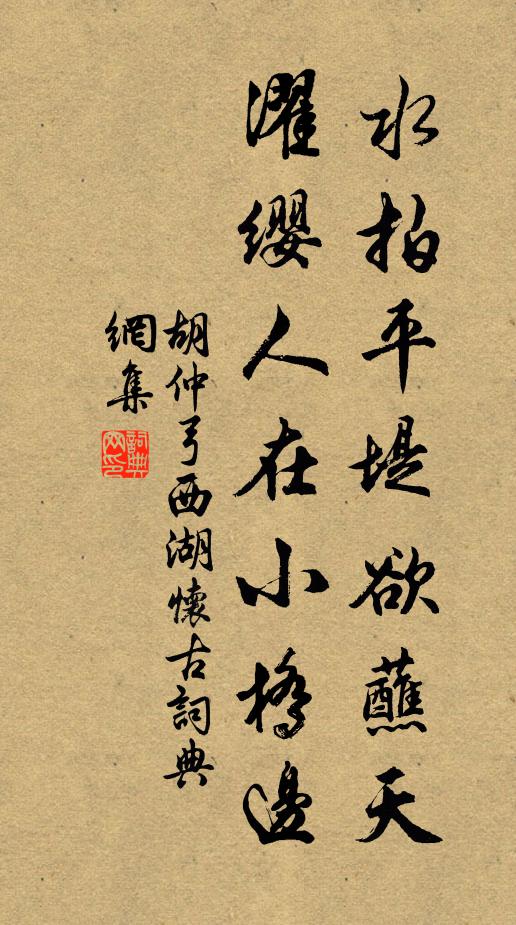 水拍平堤欲蘸天
濯缨人在小橋邊
胡仲弓西湖懷古詞典
網集
詞典
网印